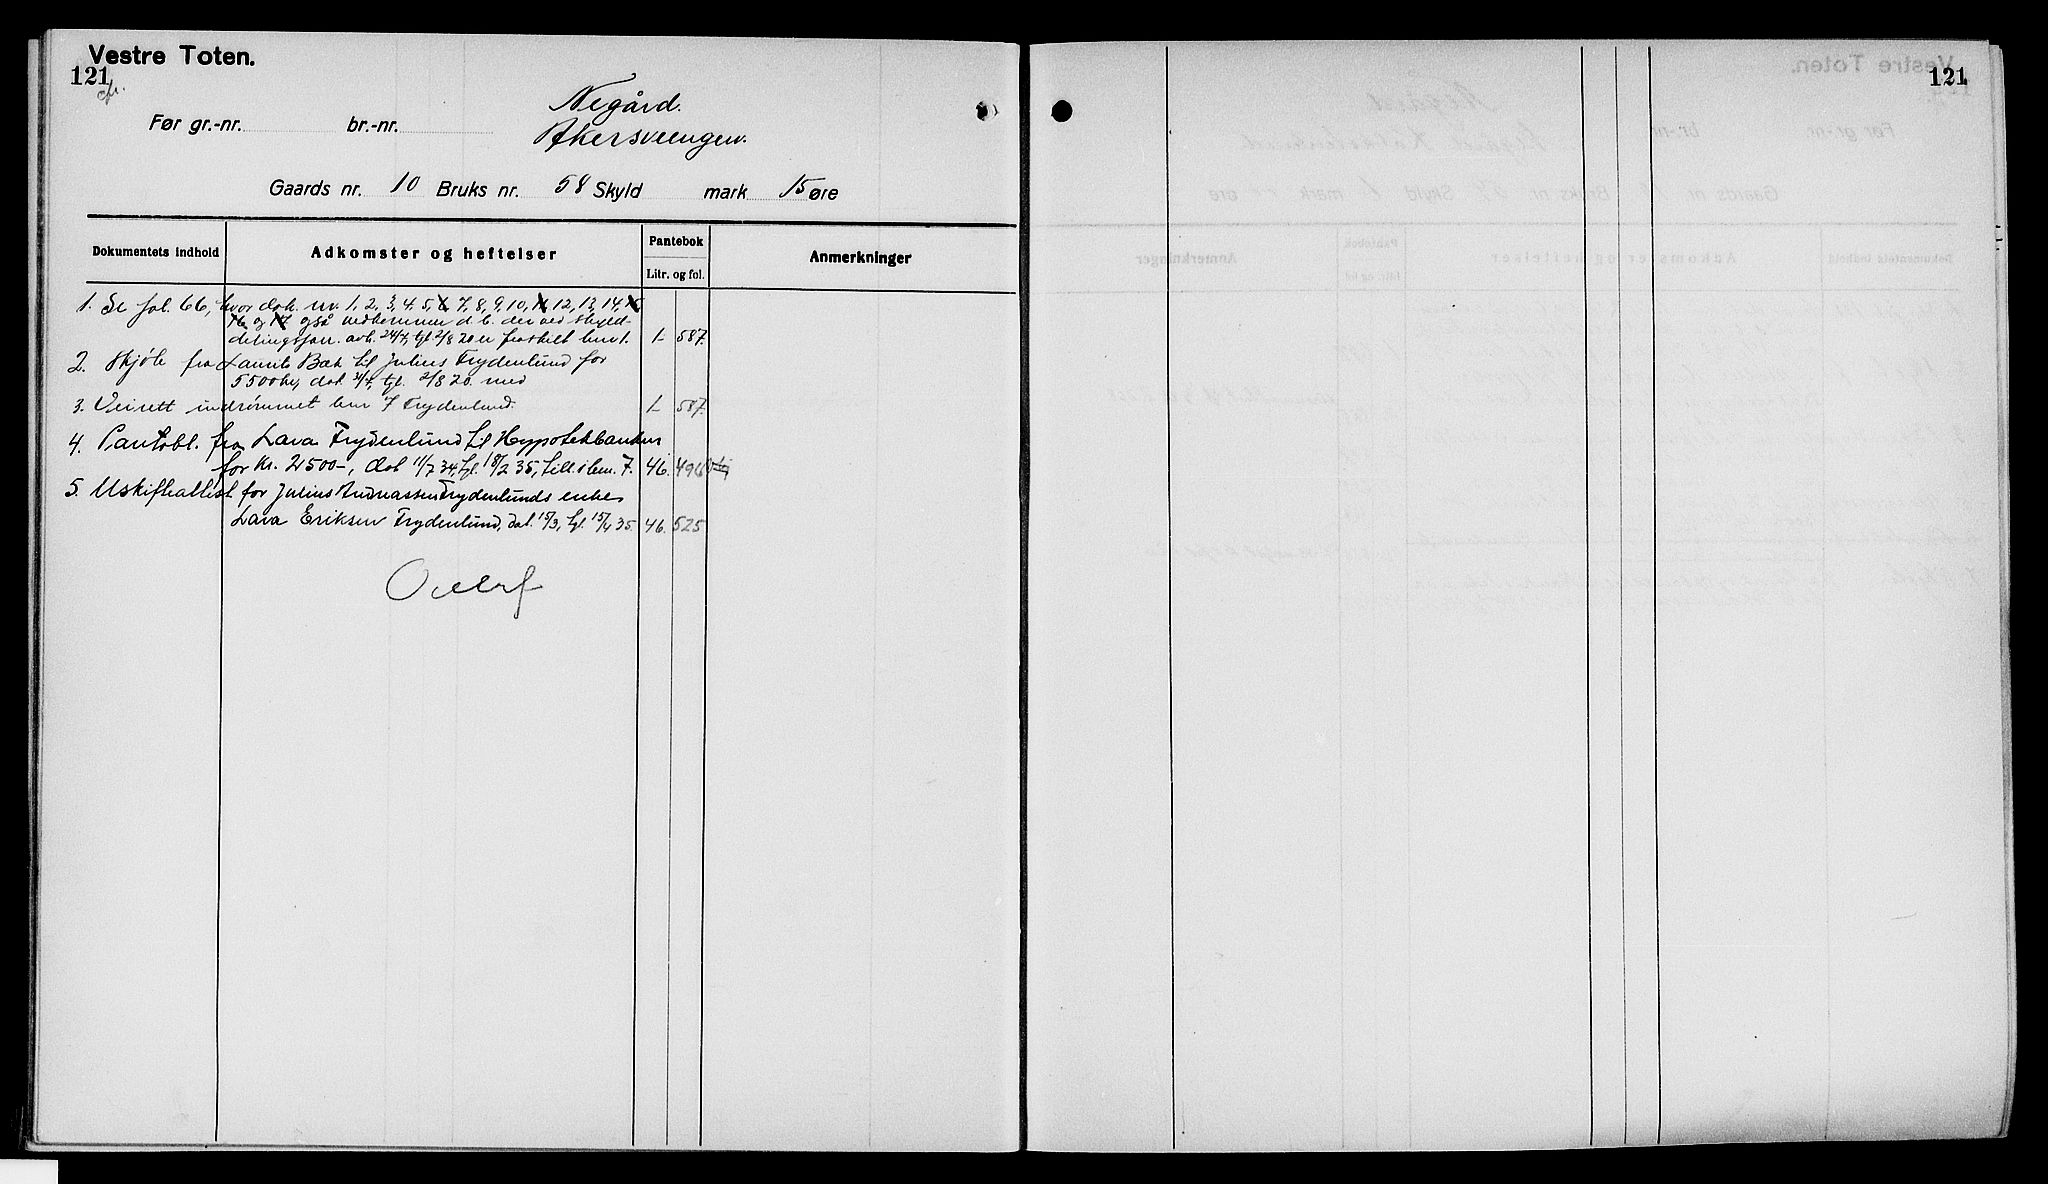 Vestre Toten.
121
Negård.
Før gr.-nr. br.-nr. Akersveengen.
Gaards nr. 10 Bruks nr. 58 Skyld mark 15 øre
Dokumentets indhold Adkomster og heftelser Pantebok Anmerkninger
Litr. og fol.
1. Se fol. 66, hvor dok. nr. 1, 2, 3, 4, 5, 6, 7, 8, 9, 10, 11, 12, 13, 14, 15,
16 og 17 også vedkommer d. b. der ved skyld-
delingsforr. avh. 24/7, tgl. 2/8 20 er fraskilt brnr 1. 1- 587.
2. Skjöte fra Laurits Bæk til Julius Frydenlund for
5500 kr, dat 31/7, tgl. 2/8 20. med
3. Veirett indrømmet bnr 7 Frydenlund. 1- 587.
4. Pantobl. fra Lava Frydenlund til Hypotekbanken
for kr. 2500-, dat 11/7 34, tgl. 18/2 35, till. i bnr. 7. 46. 496
5. Uskifteattest for Julius Andreassen Frydenlunds enke
Lava Eriksen Frydenlund, dat. 15/3, tgl. 15/4 35. 46. 525
Overf
121